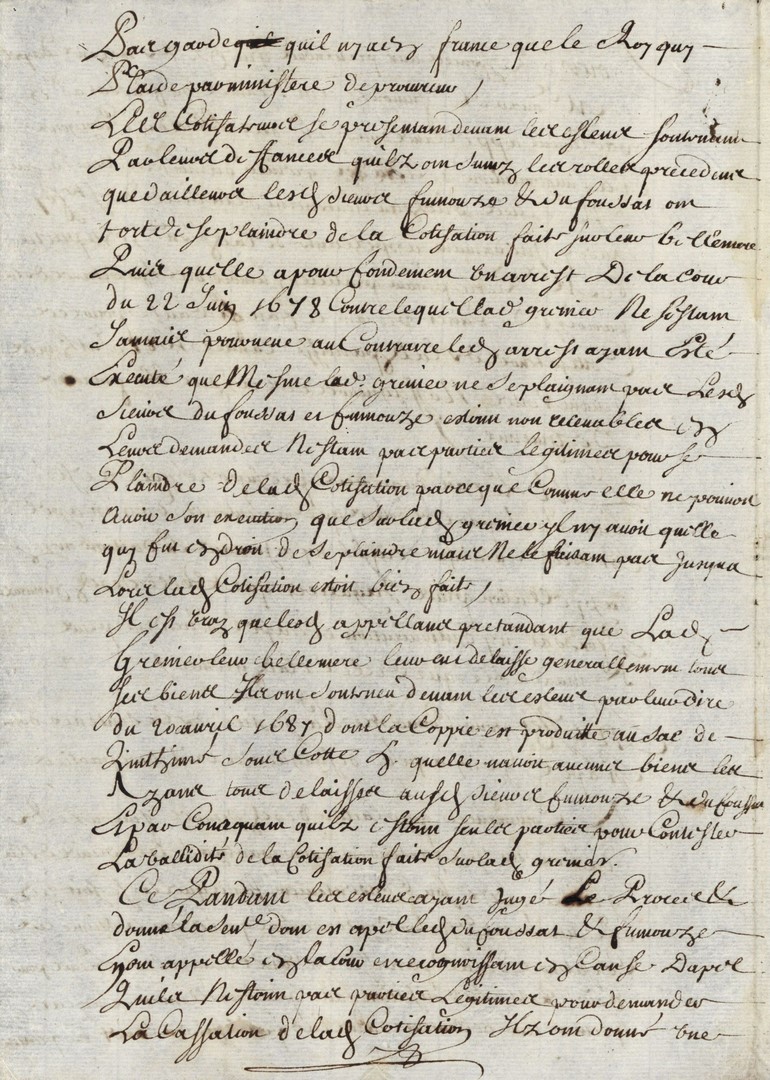 Par garde quil ny a en france que le Roy quy
Plaide par ministere de procureur /
Les Cotisateurs se presentant devant les esleus soutenant
Par leurs deffances quilz ont suivy les rolles precedens
que dailleurs lesd sieurs fumouze & du foussat ont
tort de se plaindre de la Cotisation faite sur leur bellemere
Puis quelle a pour fondement un arrest De la cour
du 22 Juin 1678 Contre lequel lad grenier Ne sestant
Jamais pourveue au Contraire led arrest ayant Esté
Executé que Mesme lad. grenier ne se plaignant pas Lesd
sieurs du foussat et fumouze estoint non recevables en
Leurs demandes Nestant pas parties legitimes pour se
Plaindre de lad Cotisation parce que Comme elle ne pouvoit
Avoir son execution que sur lad grenier yl ny avoit quelle
quy fut en droit de se plaindre mais Ne le faisant pas Jusqua
Lors lad Cotisation estoit bien faite /
Il est vray que lesd appellans pretandant que Lad
Grenier leur bellemere leur eut delaissé generallement tous
ses biens Ilz ont soutenu devant les esleus par leur dire
du 20 avril 1687 dont la Coppie est produite au sac de
sous Cotte quelle navoit aucuns biens les
Ayant tous delaissés ausd sieurs fumouze & du foussat
Et par Consequant quilz estoint seuls parties pour Contester
La vallidité de la Cotisation faite sur lad grenier.
Ce Pandant les esleus ayant Jugé Le Procés &
donné la sentce dont est apel led du foussat & fumouze
Ayant appellé en la Cour et recognoissant en Cause Dapel
Quils Nestoint pas parties Legitimes pour demander
La Cassation de lad Cotisation Ilz ont donné une